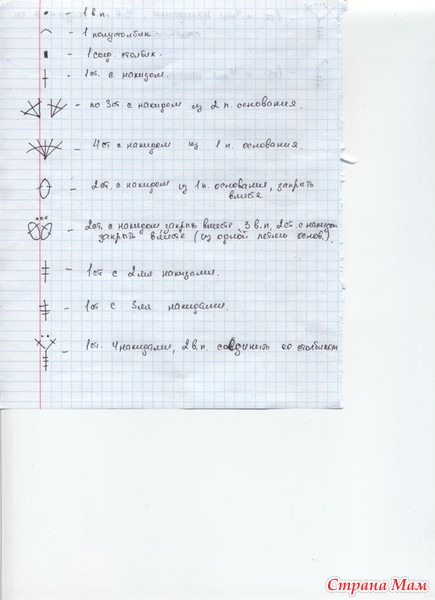 - 1 в.п.
- 1 полустолбик.
- 1 соед. столбик.
- 1 ст. с накидом.
- по 3 ст. с накидом из 2 п. основания.
- 4 ст с накидом из 1 п. основания.
- 2 ст. с накидом из 1 п. основания, закрыть
вместе
- 2 ст. с накидом закрыв вместе, 3 в.п, 2 ст. с накидом
закрыть вместе (из одной петли основ.).
- 1 ст с 2мя накидами.
- 1 ст с 3мя накидами.
- 1 ст. 4 накидами, 2 в.п. соединить со столбиком
Страна Мам